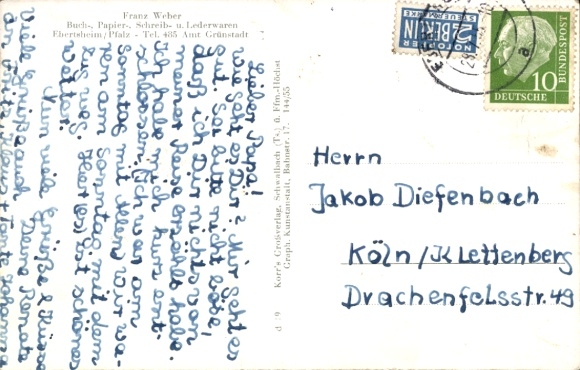 Franz Weber
Buch-, Papier-, Schreib- u. Lederwaren
Ebertsheim/Pfalz - Tel. 485 Amt Grünstadt
Lieber Papa!
Wie geht es Dir? Mir geht es
gut. Sei bitte nicht böse,
daß ich Dir nichts von
meiner Reise erzählt habe.
Ich habe mich kurz ent-
schlossen. Ich war am
Sonntag mit Wir wa-
ren am Sonntag mit dem
Bus weg. Hier (es) ist schönes
Wetter.
Nun viele Grüße & Küsse
Deine Renate
Viele Grüße auch
an Klaus + Tante Johanna
Korr's Großverlag, Schwalbach (Ts.) ü. Ffm.-Höchst
Graph. Kunstanstalt, Bahnstr. 17. 144/55
d 19
NOTOPFER
2 BERLIN
STEUERMARKE
10
DEUTSCHE BUNDESPOST
a
Herrn
Jakob Diefenbach
Köln/Klettenberg
Drachenfelsstr. 49